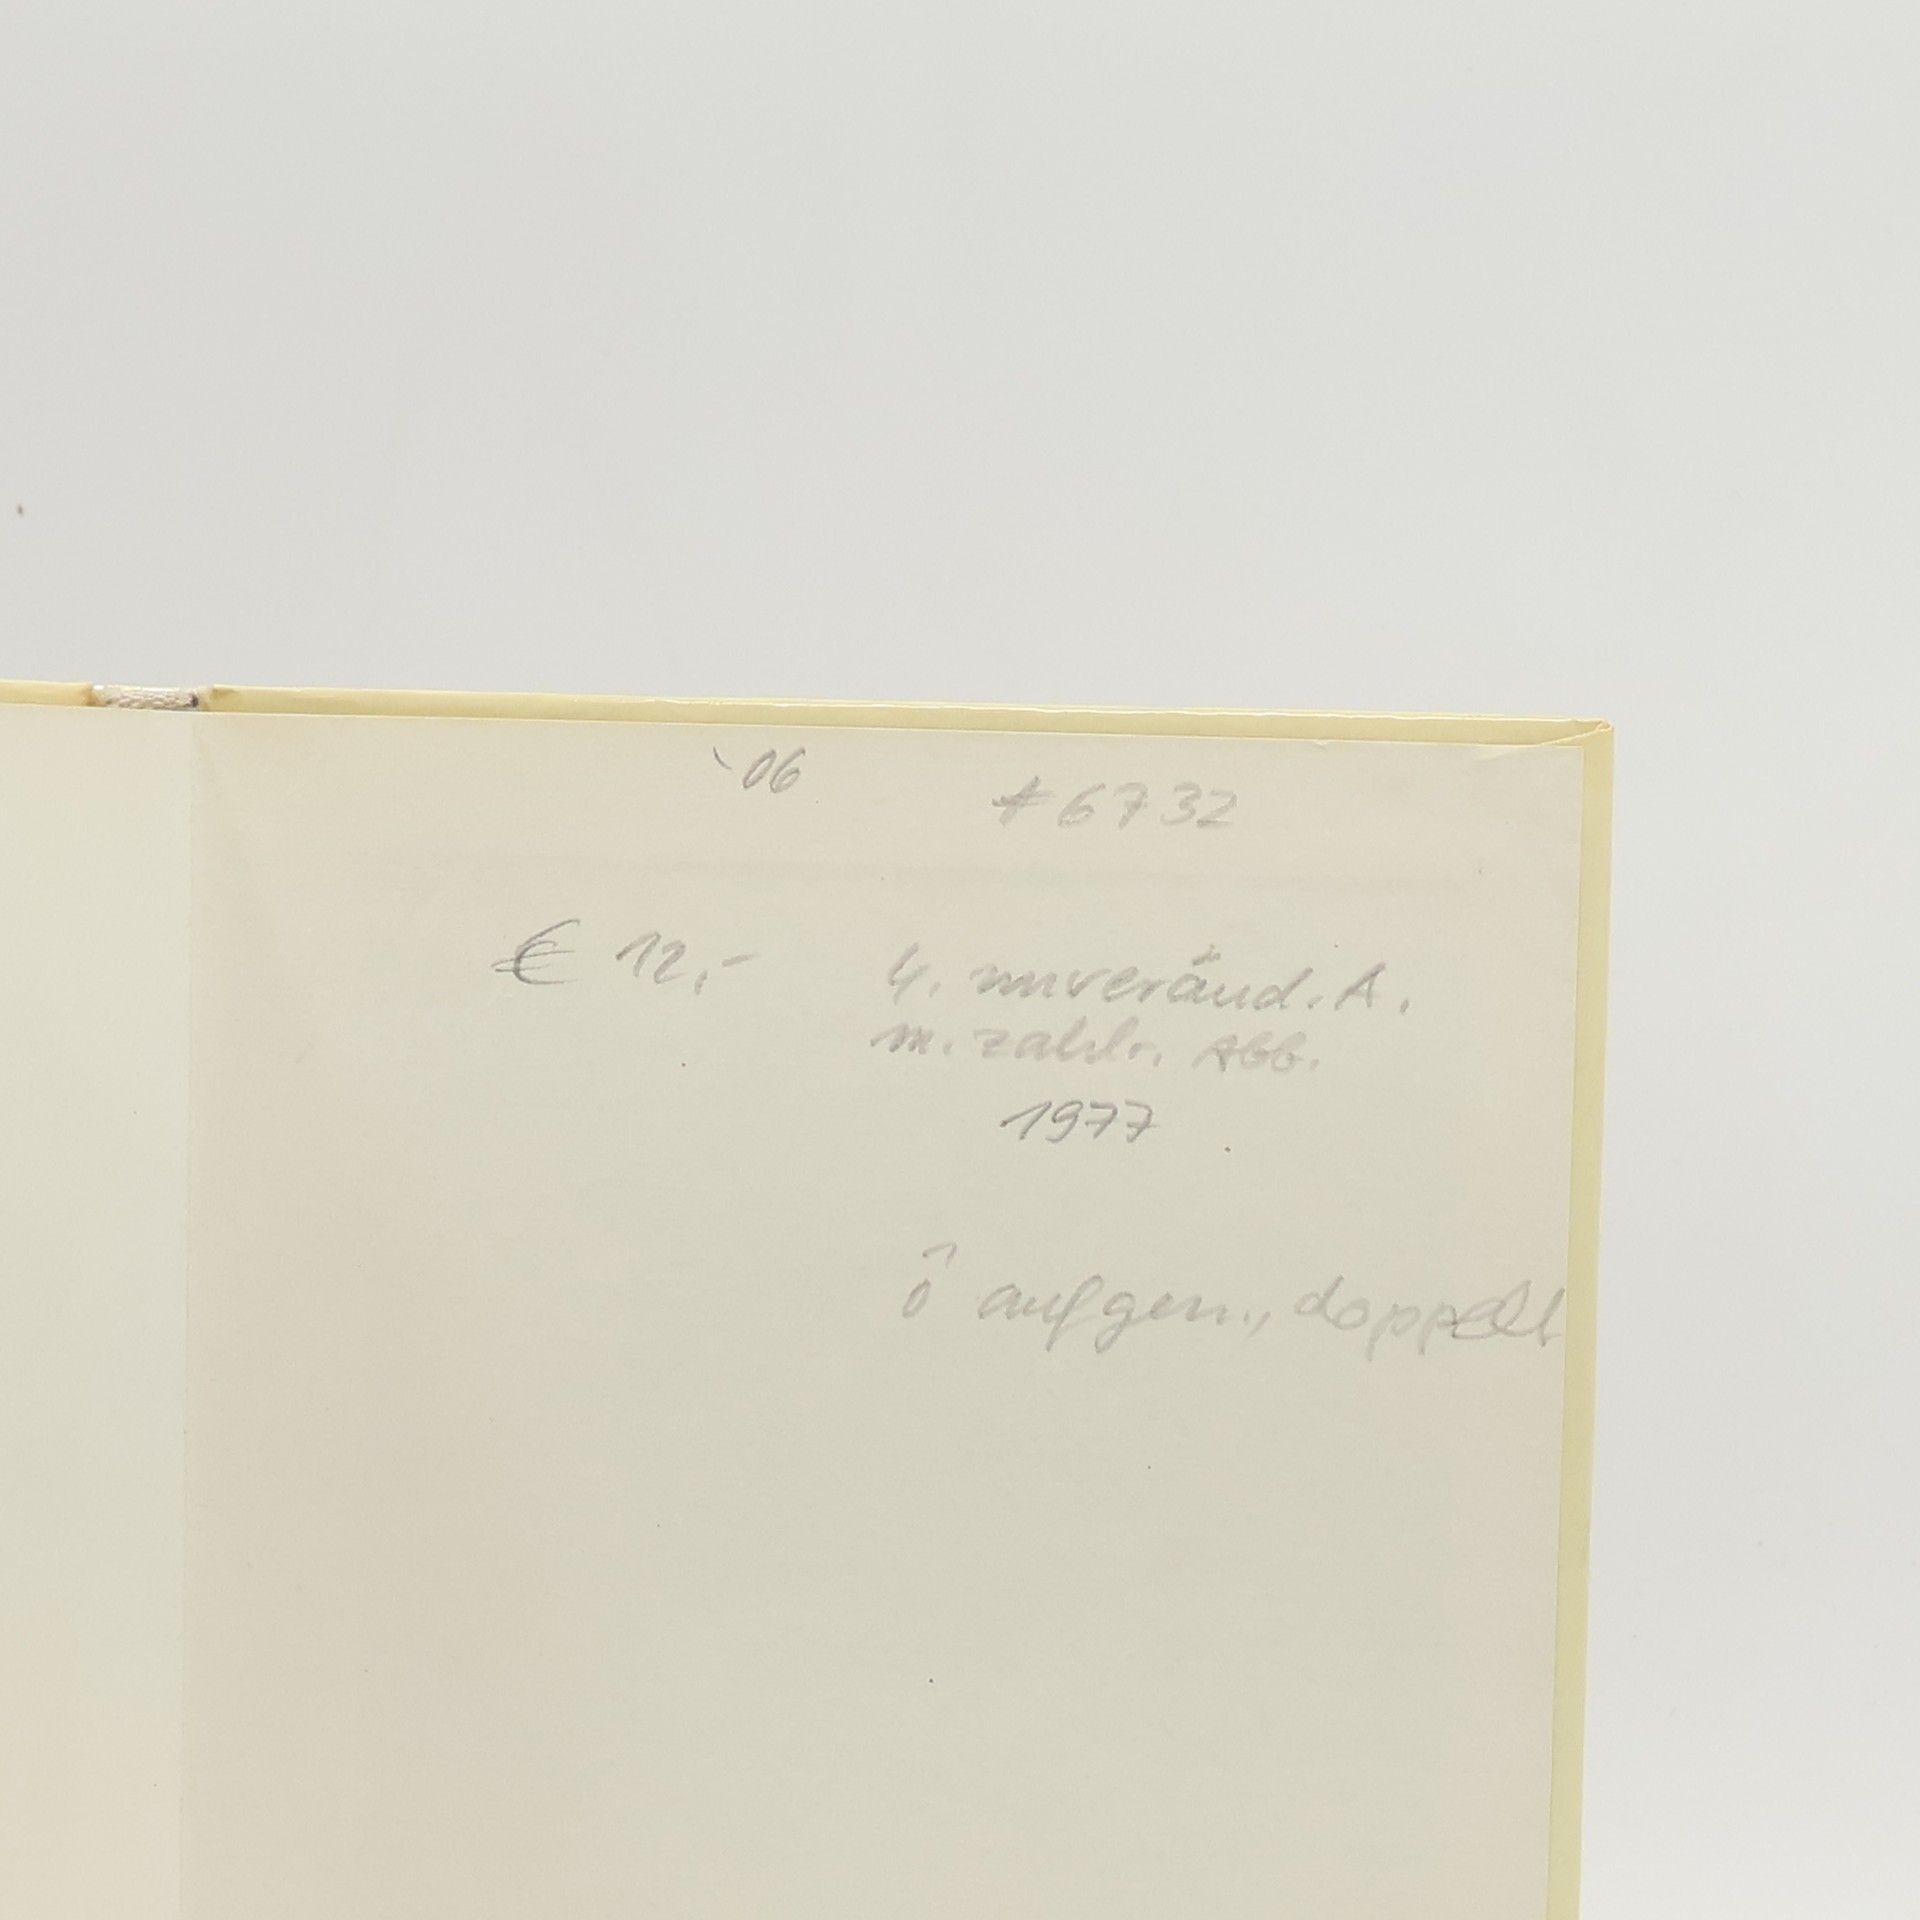 '06
*6732
€ 12,-
4. unveränd. A.
m. zahlr. Abb.
1977
aufgen., doppelt